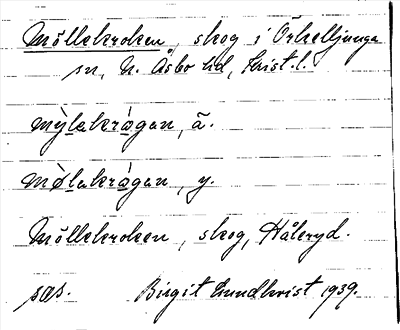 Möllekroken, skog i Örkelljunga
sn, N. Åsbo hd, Krist. l.
mỳlakrågan, ä.
mø̀lakrågan, y.
Möllekroken, skog, Håkryd.
sas. Birgit Lundkvist 1939.